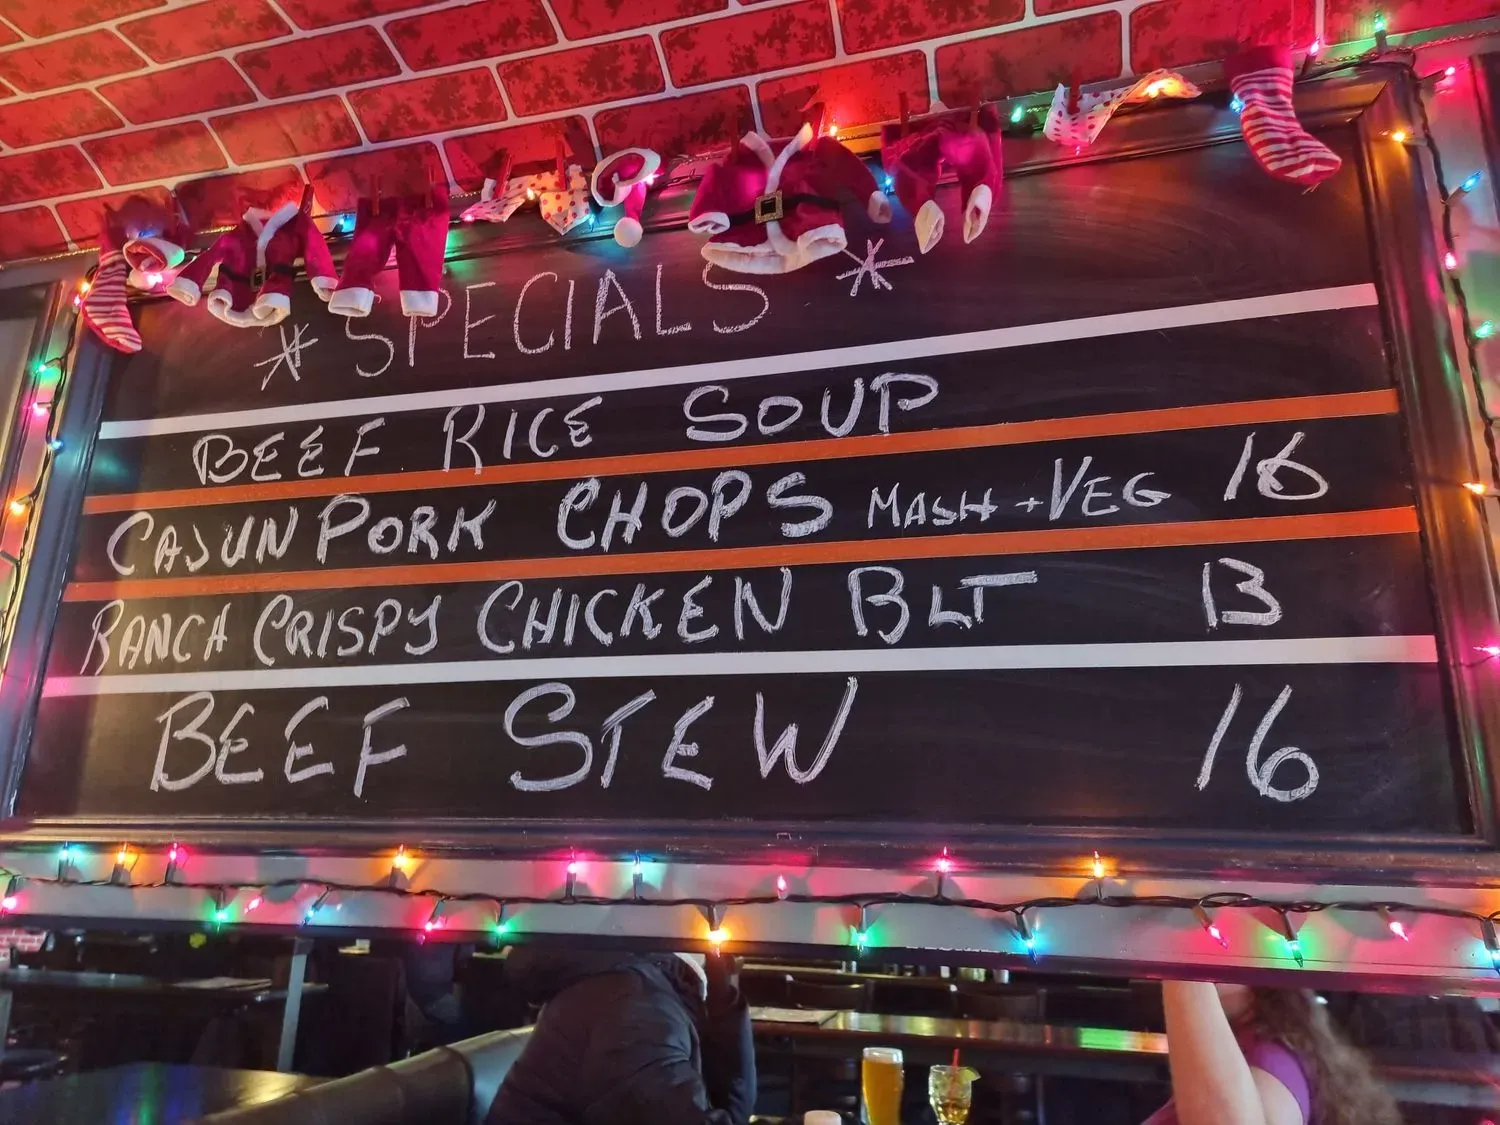 * SPECIALS *
BEEF RICE SOUP
CAJUN PORK CHOPS MASH + VEG 16
RANCH CRISPY CHICKEN BLT 13
BEEF STEW 16